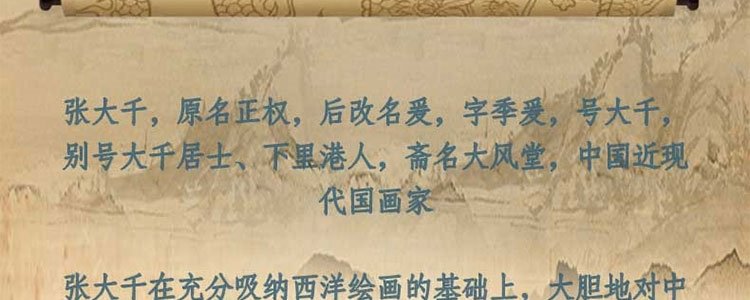 张大千，原名正权，后改名爰，字季爰，号大千，
别号大千居士、下里港人，斋名大风堂，中国近现
代国画家
张大千在充分吸纳西洋绘画的基础上，大胆地对中